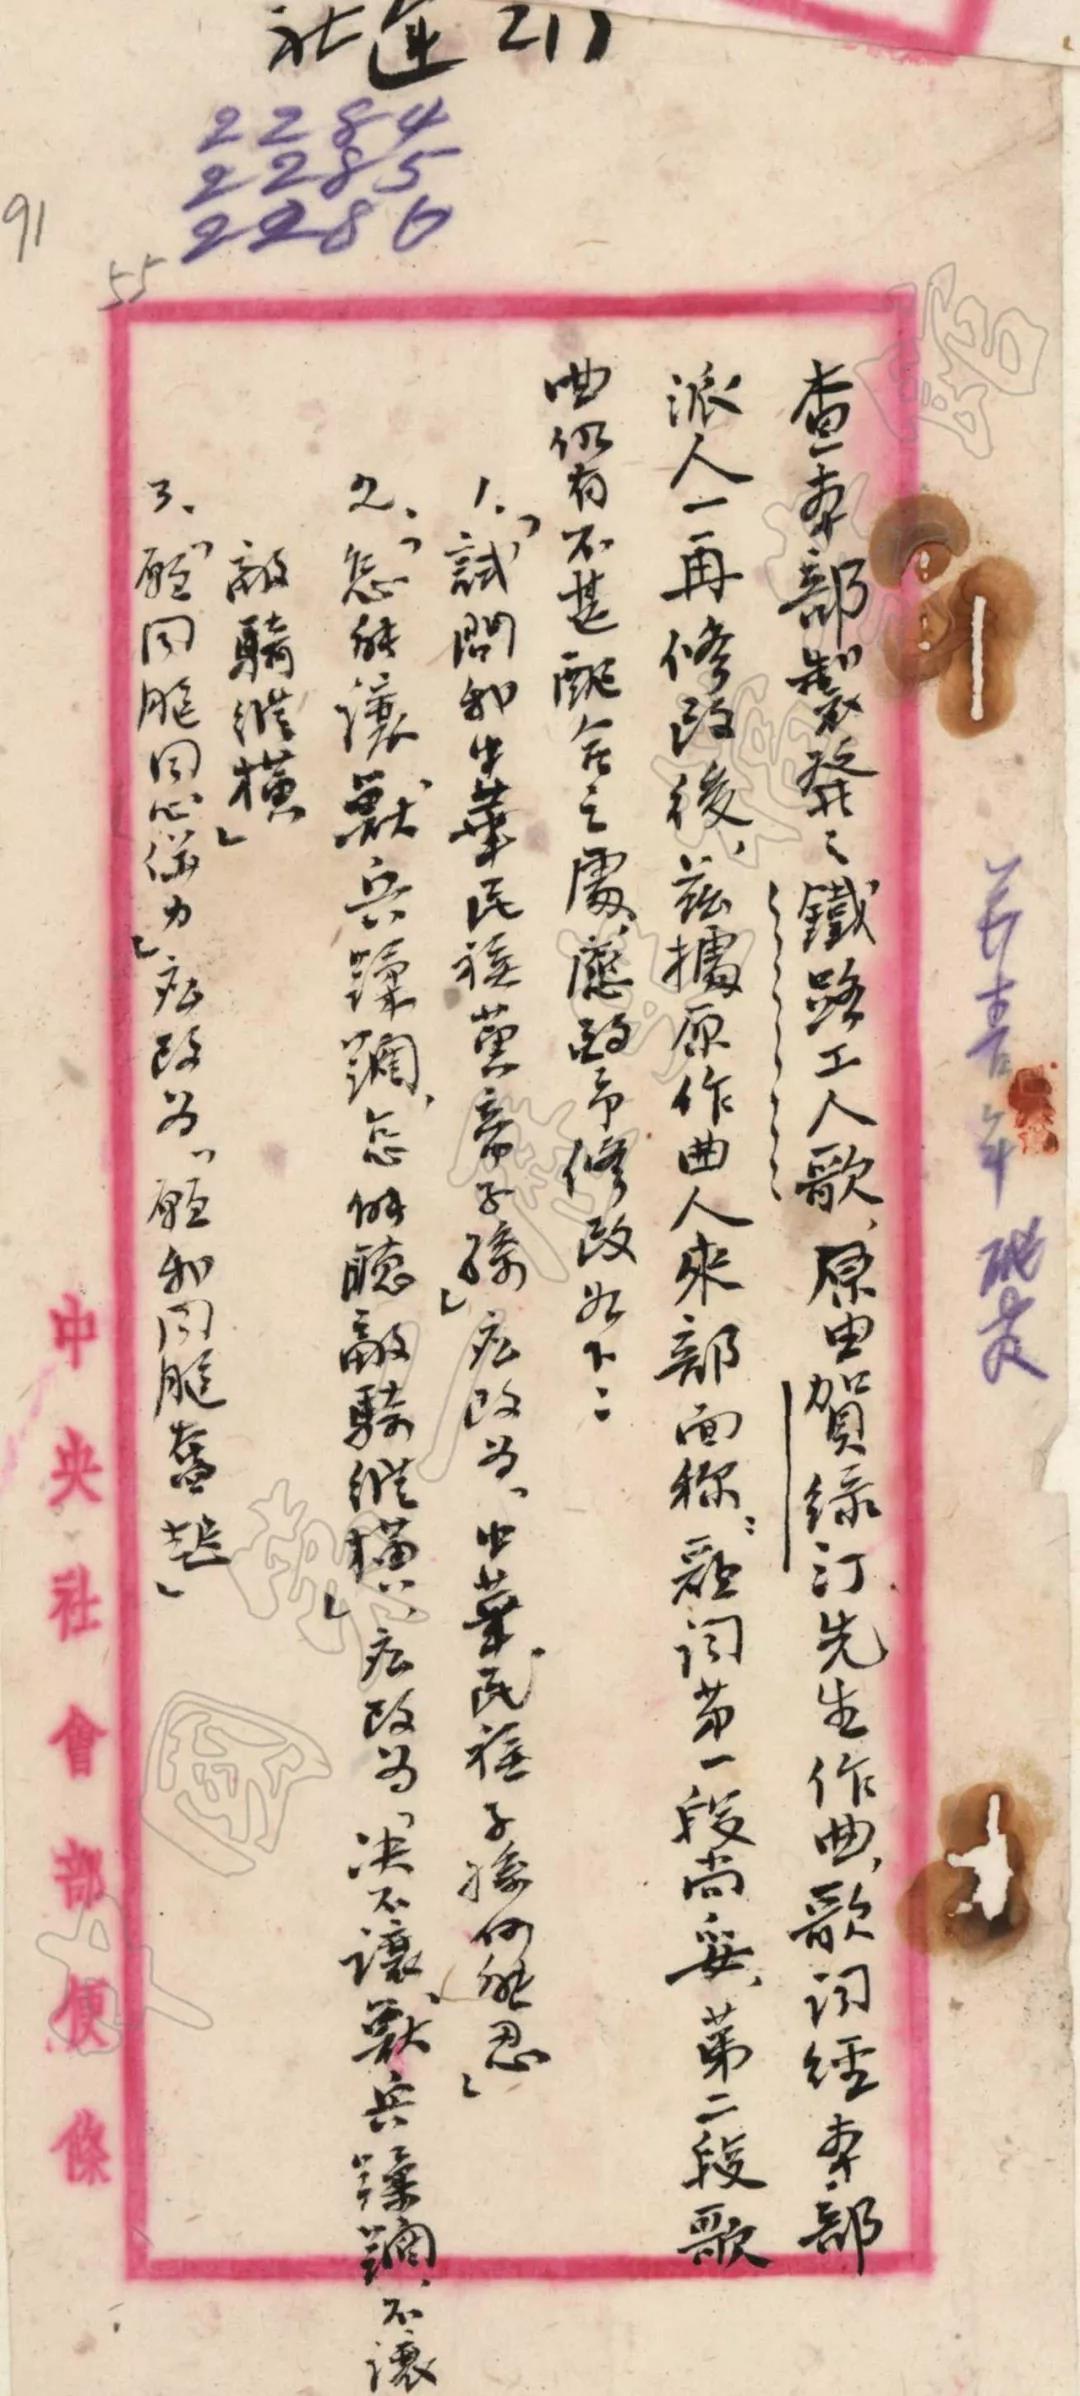 社運 217
2284
2285
2286
91
55
查本部製發之鐵路工人歌，原由賀綠汀先生作曲，歌詞經本部
派人一再修改後，茲據原作曲人來部面称：歌詞第一段尚妥，第二段歌
曲仍有不甚配合之處，應酌予修改如下：
1.「試問我中華民族黃帝子孫」應改為「中華民族子孫何能忍」
2.「怎能讓獸兵蹂躪，怎能聽敵騎縱橫」應改為「决不讓獸兵蹂躪，不讓
敵騎縱橫」
3.「願同胞同心協力」应改为「願我同胞奮起」
中央社會部便條